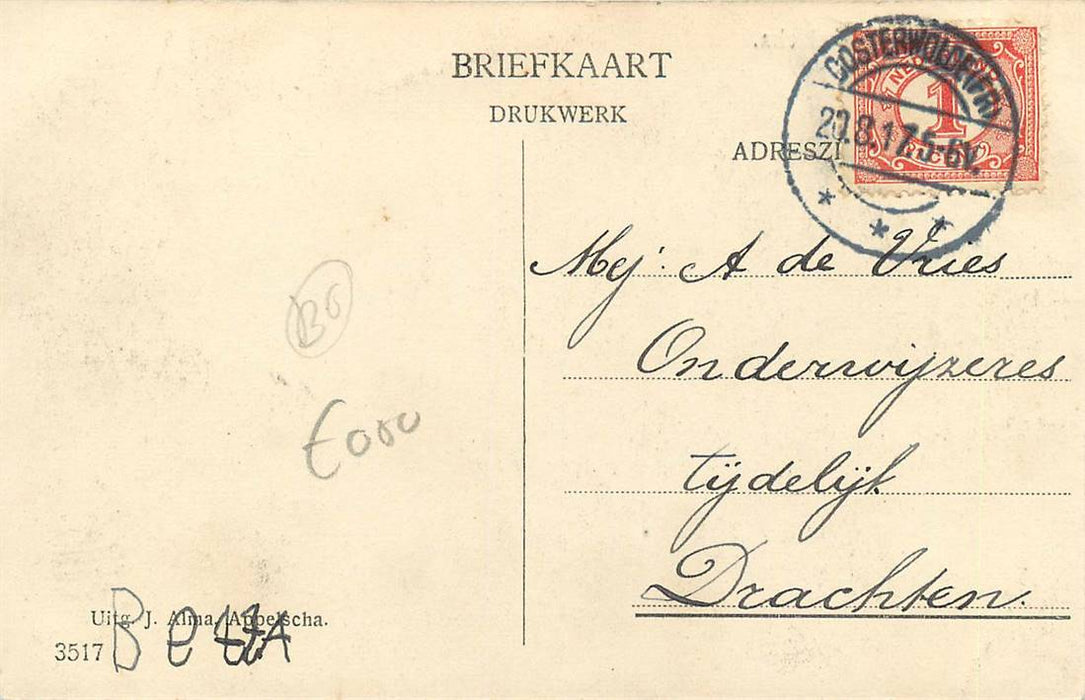 BRIEFKAART
DRUKWERK
ADRESZI
OOSTERWOLDE (FR)
20.8.17.5-6V.
1
Mej. A de Vries
Onderwijzeres
tijdelijk
Drachten.
BG
Uitg. J. Alma, Appelscha.
3517